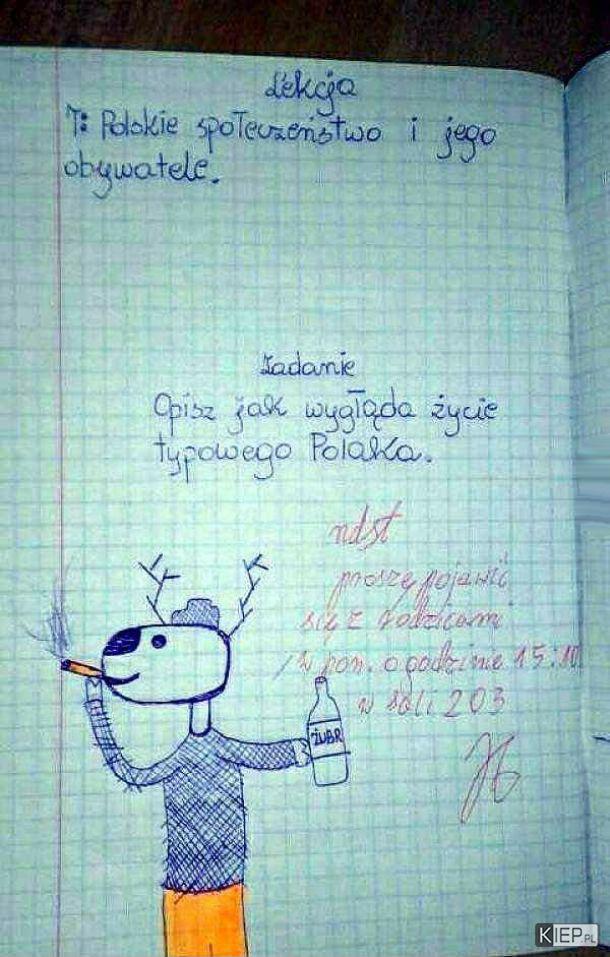 Lekcja
T: Polskie społeczeństwo i jego
obywatele.
Zadanie
Opisz jak wygłąda życie
typowego Polaka.
ndst
proszę pojawić
się z rodzicami
w pon. o godzinie 15:10
w sali 203
ŻUBR
KIEP.PL